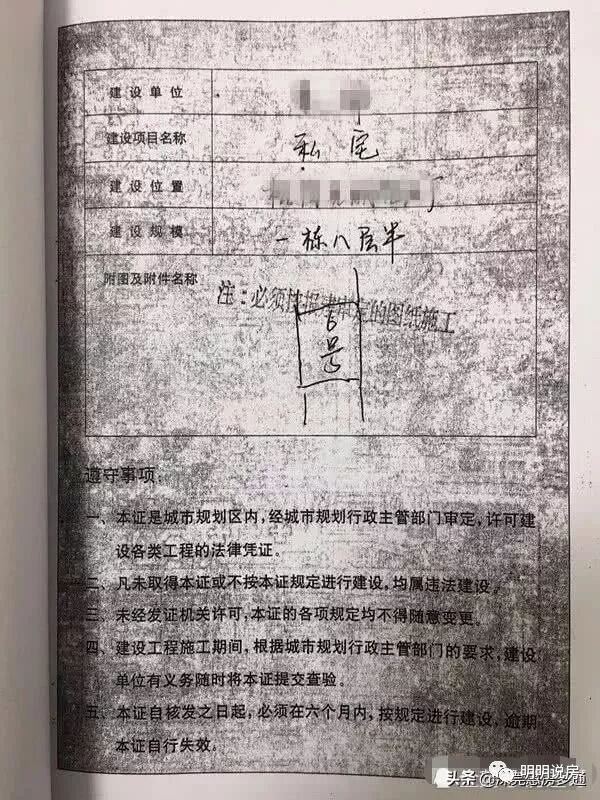 建设单位
建设项目名称 私宅
建设位置
建设规模 一栋八层半
附图及附件名称
注：必须按报建审定的图纸施工
6号
遵守事项：
一、本证是城市规划区内，经城市规划行政主管部门审定，许可建
设各类工程的法律凭证。
二、凡未取得本证或不按本证规定进行建设，均属违法建设。
三、未经发证机关许可，本证的各项规定均不得随意变更。
四、建设工程施工期间，根据城市规划行政主管部门的要求，建设
单位有义务随时将本证提交查验。
五、本证自核发之日起，必须在六个月内，按规定进行建设，逾期
本证自行失效。
头条
明明说房